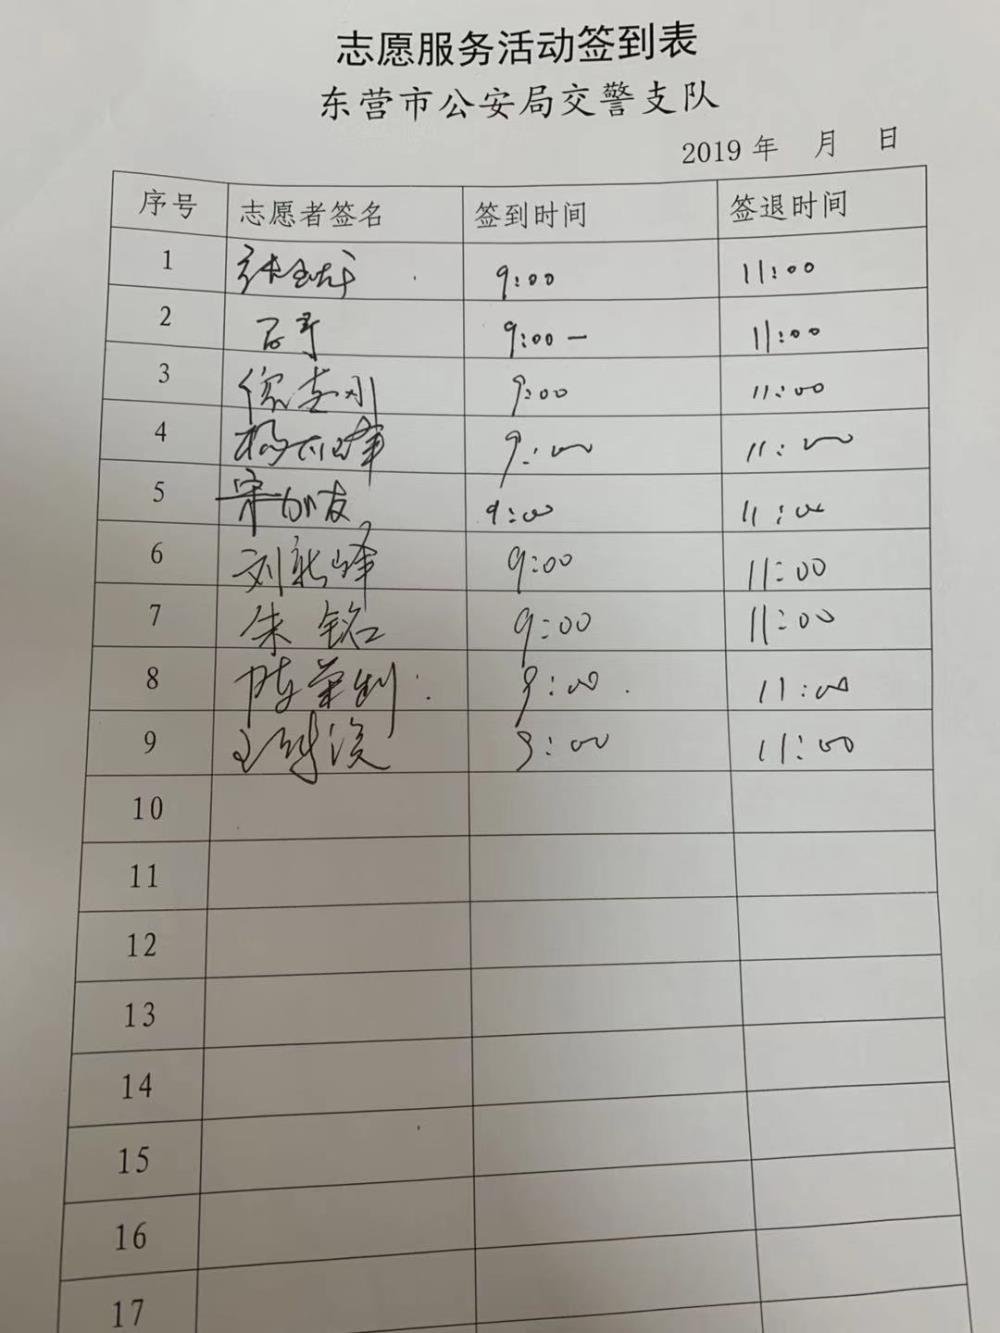 志愿服务活动签到表
东营市公安局交警支队
2019 年 月 日
序号 志愿者签名 签到时间 签退时间
1 9:00 11:00
2 9:00 — 11:00
3 9:00 11:00
4 9:00 11:00
5 宋加友 9:00 11:00
6 刘新峰 9:00 11:00
7 朱铭 9:00 11:00
8 陈荣利 9:00 11:00
9 9:00 11:00
10
11
12
13
14
15
16
17